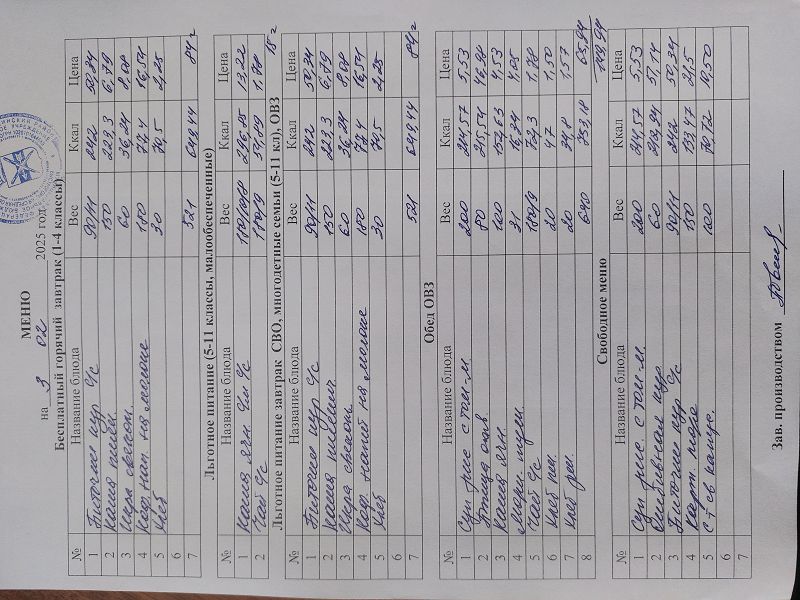 МЕНЮ
на 3 02 2025 год.
Бесплатный горячий завтрак (1-4 классы)
№ Название блюда Вес Ккал Цена
1 Биточки кур с/с 90/11 242 50,34
2 Каша пшен. 150 223,3 6,79
3 Икра свекол. 60 56,24 8,08
4 Коф. нап. на молоке 180 72,4 16,54
5 Хлеб 30 70,5 2,25
6
7 521 84 г
Льготное питание (5-11 классы, малообеспеченные)
№ Название блюда Вес Ккал Цена
1 Каша ячн. с/с 13,22
2 Чай с/с 180/9 1,78
15 г
Льготное питание завтрак СВО, многодетные семьи (5-11 кл), ОВЗ
№ Название блюда Вес Ккал Цена
1 Биточки кур с/с 90/11 242 50,34
2 Каша пшенич 150 223,3 6,79
3 Икра свекол. 60 56,24 8,08
4 Коф. напит на молоке 180 72,4 16,54
5 Хлеб 30 70,5 2,25
6
7 521 84 г
Обед ОВЗ
№ Название блюда Вес Ккал Цена
1 Суп рис с том-м. 200 5,53
2 Птица отв 80 215,54 46,98
3 Каша ячн. 100 154,63 4,53
4 31 16,34 4,05
5 Чай с/с 180/9 1,78
6 Хлеб пш. 20 47 1,50
7 Хлеб рж. 20 1,57
8 640 753,18 65,94
149,94
Свободное меню
№ Название блюда Вес Ккал Цена
1 Суп рис. с том-м. 200 5,53
2 60 57,14
3 Биточки кур с/с 90/11 242 50,34
4 Карт. пюре 150 133,47 21,5
5 100 79,72 10,50
6
7
Зав. производством